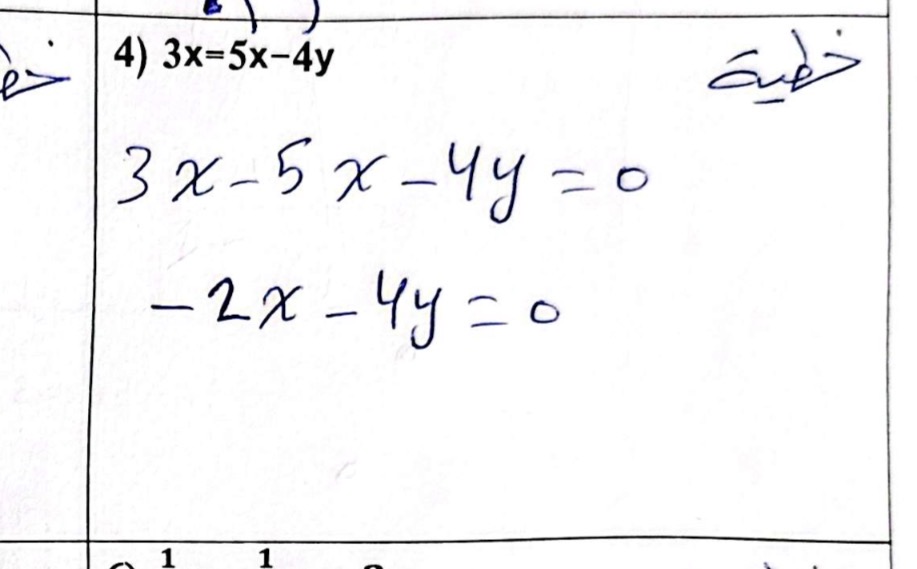 4) 3x=5x−4y
خطية
3x-5x-4y=0
-2x-4y=0
1 1